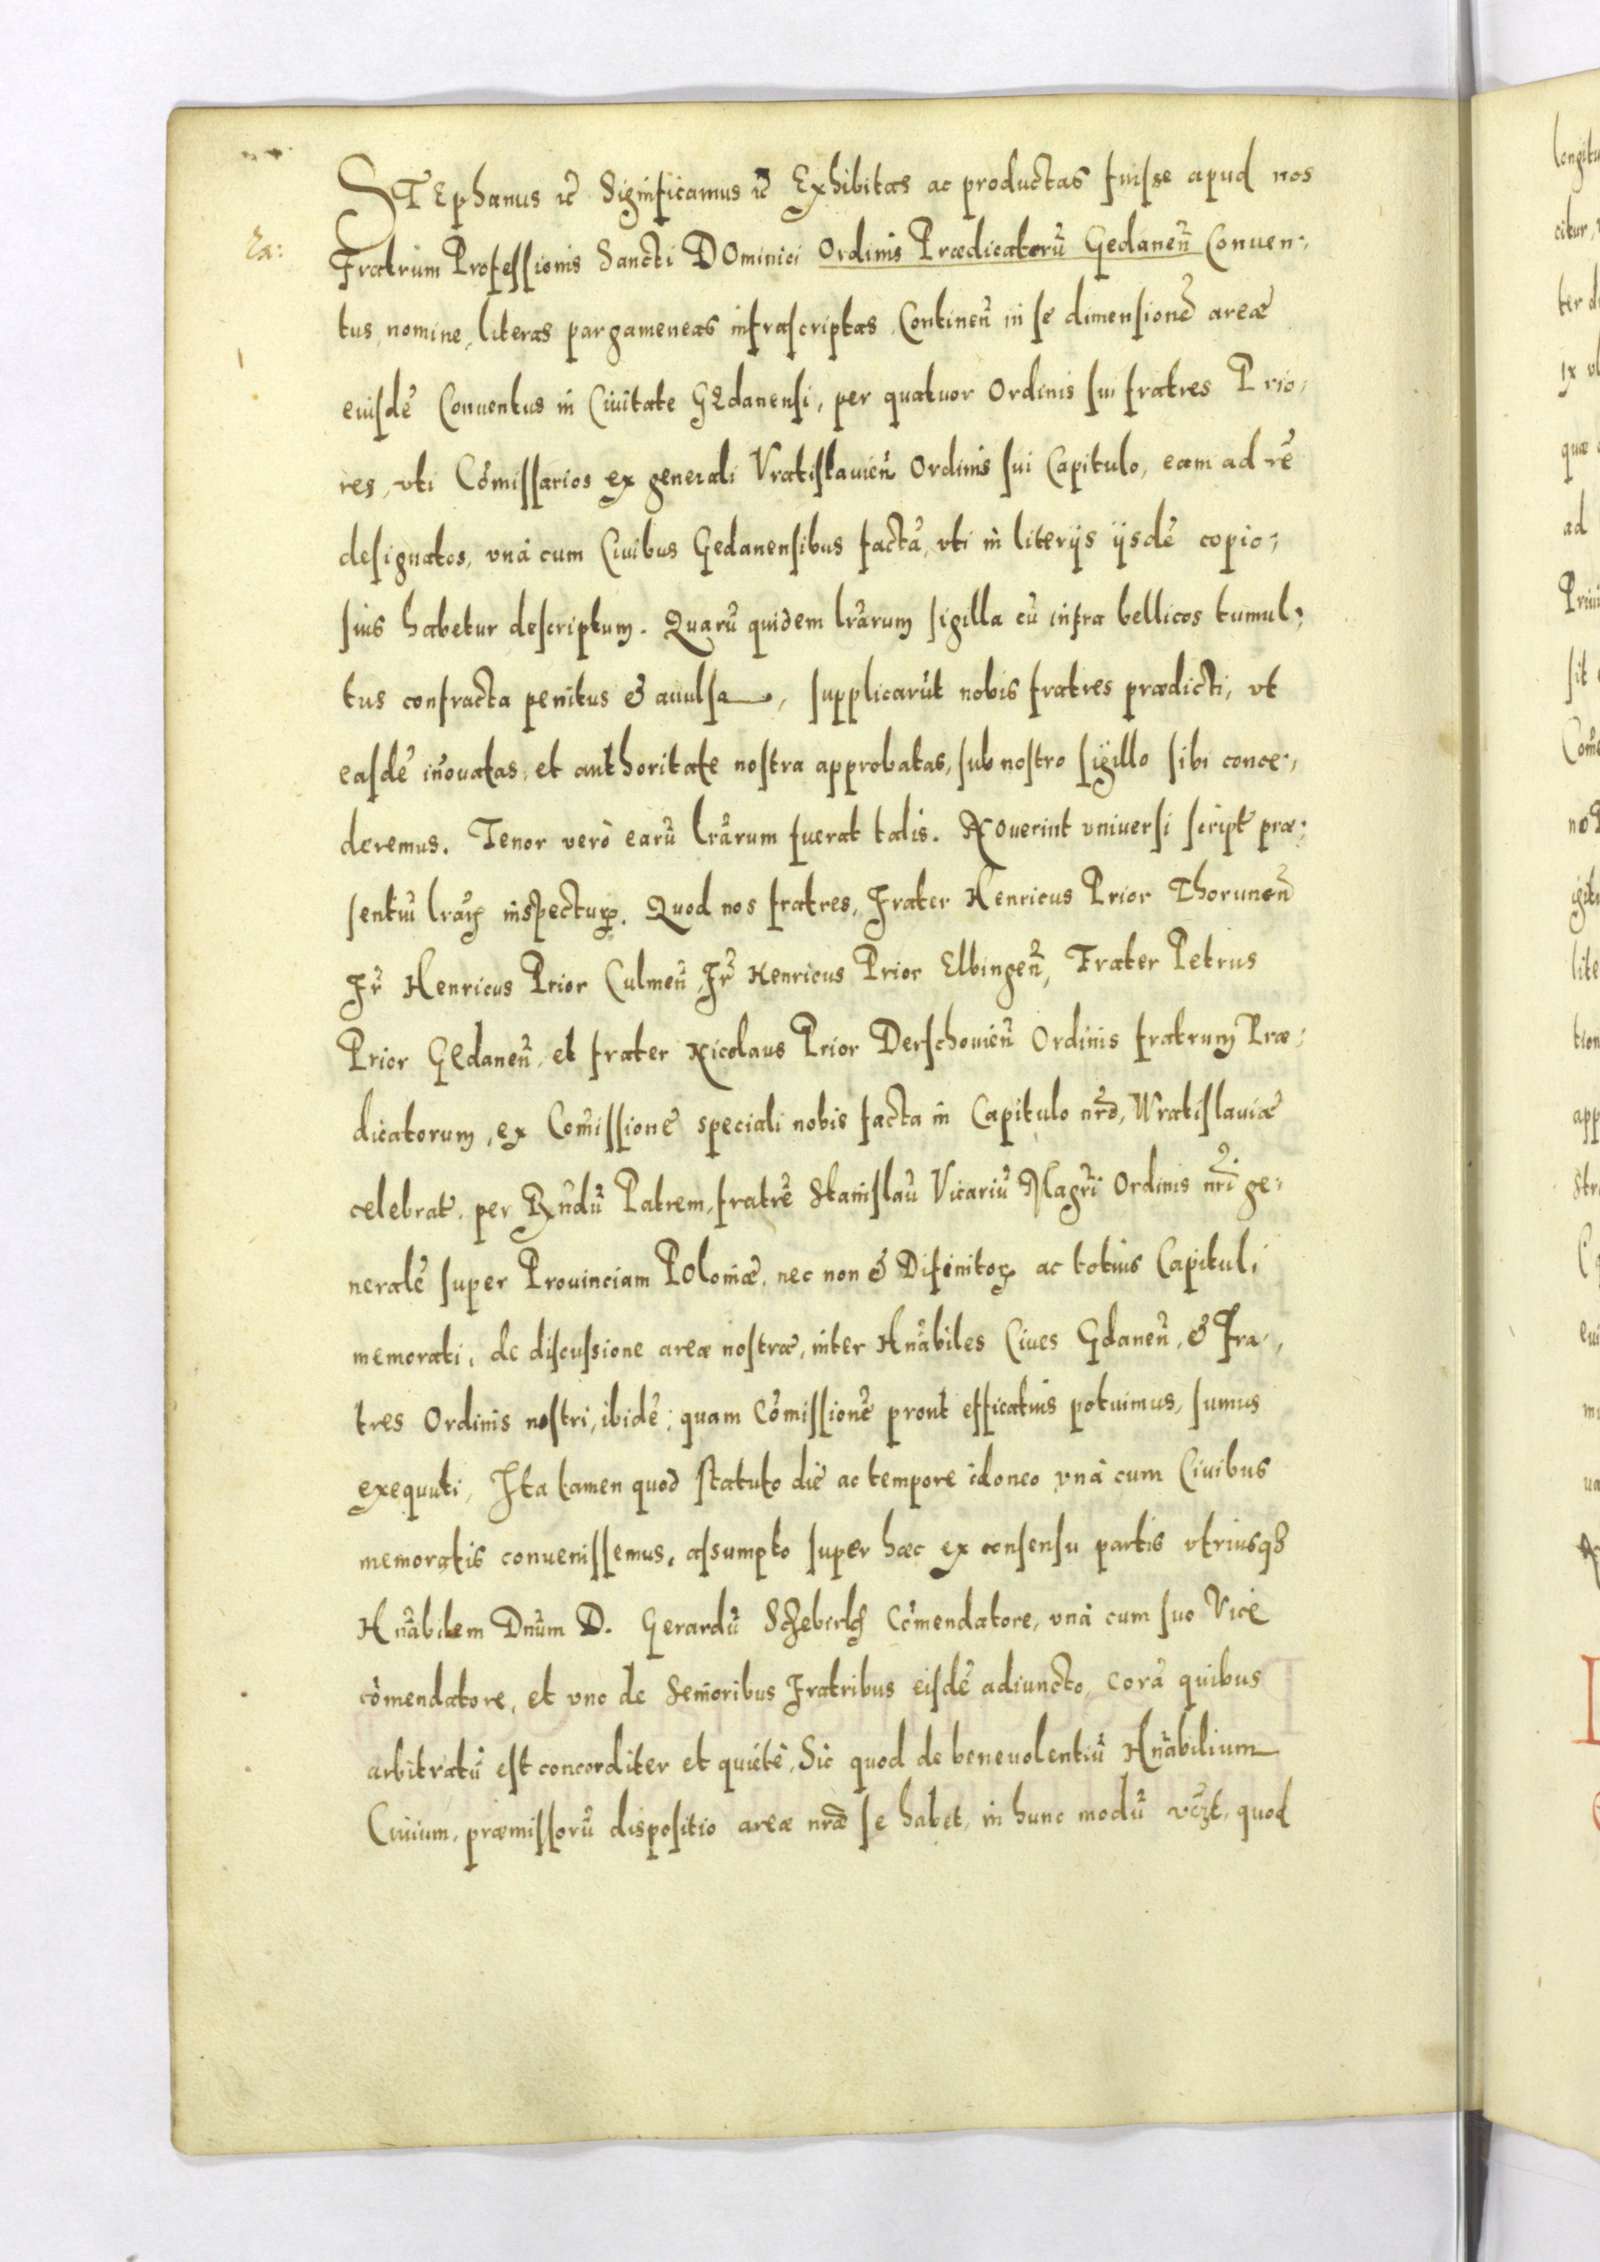 STEphanus ꝛc Significamus ꝛc Exhibitas ac productas fuisse apud nos
Fratrum Professionis Sancti DOminici Ordinis Prædicatorū Gedaneñ Conuen-
tus, nomine, literas pargameneas infrascriptas, Contineñ in se dimensionē areæ
euisdē Conuentus in Ciuitate GEdanensi, per quatuor Ordinis sui fratres Prio-
res, vti Cōmissarios ex generali Vratislauieñ Ordinis sui Capitulo, eam ad rē
designatos, vnà cum Ciuibus Gedanensibus factā, vti in literijs ijsdē copio-
sius habetur descriptum. Quarū quidem lrārum sigilla cū infra bellicos tumul-
tus confracta penitus & auulsa, supplicarūt nobis fratres prædicti, vt
easdē iñouatas, et authoritate nostra approbatas, sub nostro sigillo sibi conce-
deremus. Tenor verò earū lrārum fuerat talis. NOuerint vniuersi script præ-
sentiū lrāꝝ inspectuꝝ. Quod nos fratres, Frater Henricus Prior Thoruneñ
Fr̄ Henricus Prior Culmeñ, Fr̄ Henricus Prior Elbingeñ, Frater Petrus
Prior GEdaneñ, et frater Nicolaus Prior Derschouieñ Ordinis fratrum Præ-
dicatorum, ex Comīssione speciali nobis facta in Capitulo nr̄o, Wratislauiæ
celebrat. per Rñdū Patrem, fratrē Stanislaū Vicariū Magr̄i Ordinis nr̄i ge-
neralē super Prouinciam POloniæ, nec non & Difinitoꝝ ac totius Capituli
memorati, de discussione areæ nostræ, inter Hnābiles Ciues Gdaneñ, & Fra-
tres Ordinis nostri, ibidē; quam Cōmissionē prout efficatius potuimus, sumus
exequuti, Ita tamen quod statuto die ac tempore idoneo vnà cum Ciuibus
memoratis conuenissemus, assumpto super hæc ex consensu partis vtriusqȝ
Hnābilem Dnūm D. Gerardū Cōmendatore, vnà cum suo Vice
cōmendatore, et vno de Senioribus Fratribus eisdē adiuncto, corā quibus
arbitratū est concorditer et quiétè, Sic quod de beneuolentiū Hnābilium
Ciuium, præmissorū dispositio areæ nr̄æ se habet, in hunc modū vꝫt, quod
Ea: